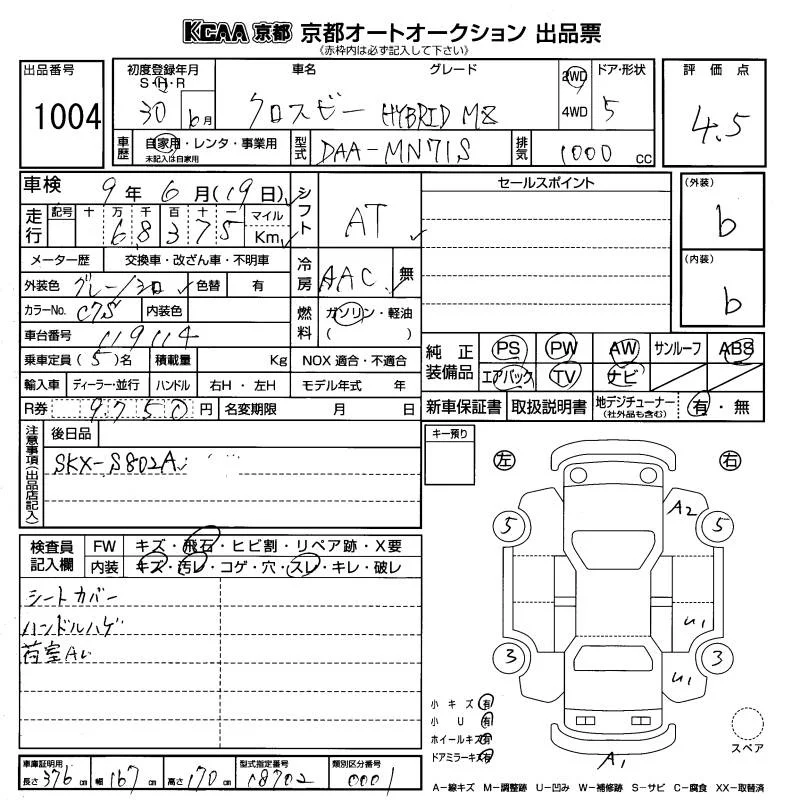 KCAA 京都 京都オートオークション 出品票
《赤枠内は必ず記入して下さい》
出品番号
1004
初度登録年月
S・H・R
30 6月
車名 グレード
クロスビー HYBRID MZ
2WD
4WD
ドア・形状
5
評価点
4.5
車歴
自家用・レンタ・事業用
未記入は自家用
型式
DAA-MN71S
排気
1000 cc
車検 9年 6月(19日)
シフト
AT
走行
記号 十 万 千 百 十 一
6 8 3 7 5
マイル
Km
メーター歴 交換車・改ざん車・不明車
冷房
AAC 無
外装色 グレー/シロ 色替 有
カラーNo. C7S 内装色
燃料
ガソリン・軽油
( )
車台番号 119114
乗車定員(5)名 積載量 Kg NOX 適合・不適合
輸入車 ディーラー・並行 ハンドル 右H・左H モデル年式 年
R券 9750円 名変期限 月 日
セールスポイント
(外装)
b
(内装)
b
純正装備品
PS PW AW サンルーフ ABS
エアバック TV ナビ
新車保証書 取扱説明書 地デジチューナー (社外品も含む) 有・無
注意事項(出品店記入)
後日品
SKX-S802A
キー預り
左 右
検査員記入欄
FW キズ・飛石・ヒビ割・リペア跡・X要
内装 キズ・汚レ・コゲ・穴・スレ・キレ・破レ
シートカバー
ハンドルハゲ
荷室A
5 A2 5
U1
3 U1 3
A1
小キズ 有
小U 有
ホイールキズ 有
ドアミラーキズ 有
スペア
車庫証明用
長さ 376cm 幅 167cm 高さ 170cm
型式指定番号
18702
類別区分番号
0001
A-線キズ M-調整跡 U-凹み W-補修跡 S-サビ C-腐食 XX-取替済